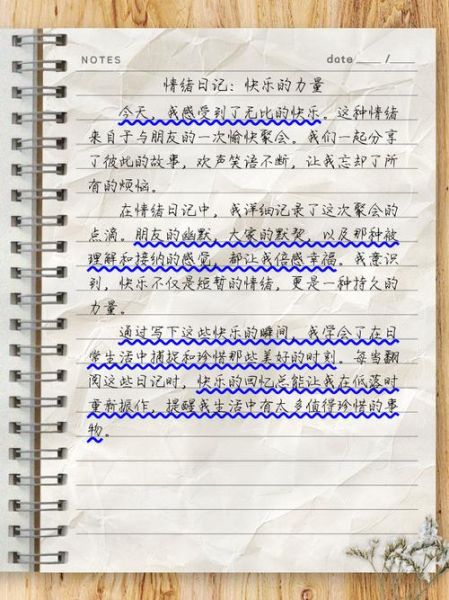 NOTES
date ___ /___
情绪日记：快乐的力量
今天，我感受到了无比的快乐。这种情绪
来自于与朋友的一次愉快聚会。我们一起分享
了彼此的故事，欢声笑语不断，让我忘却了所
有的烦恼。
在情绪日记中，我详细记录了这次聚会的
点滴。朋友的幽默，大家的默契，以及那种被
理解和接纳的感觉，都让我倍感幸福。我意识
到，快乐不仅是短暂的情绪，更是一种持久的
力量。
通过写下这些快乐的瞬间，我学会了在日
常生活中捕捉和珍惜那些美好的时刻。每当翻
阅这些日记时，快乐的回忆总能让我在低落时
重新振作，提醒我生活中有太多值得珍惜的事
物。